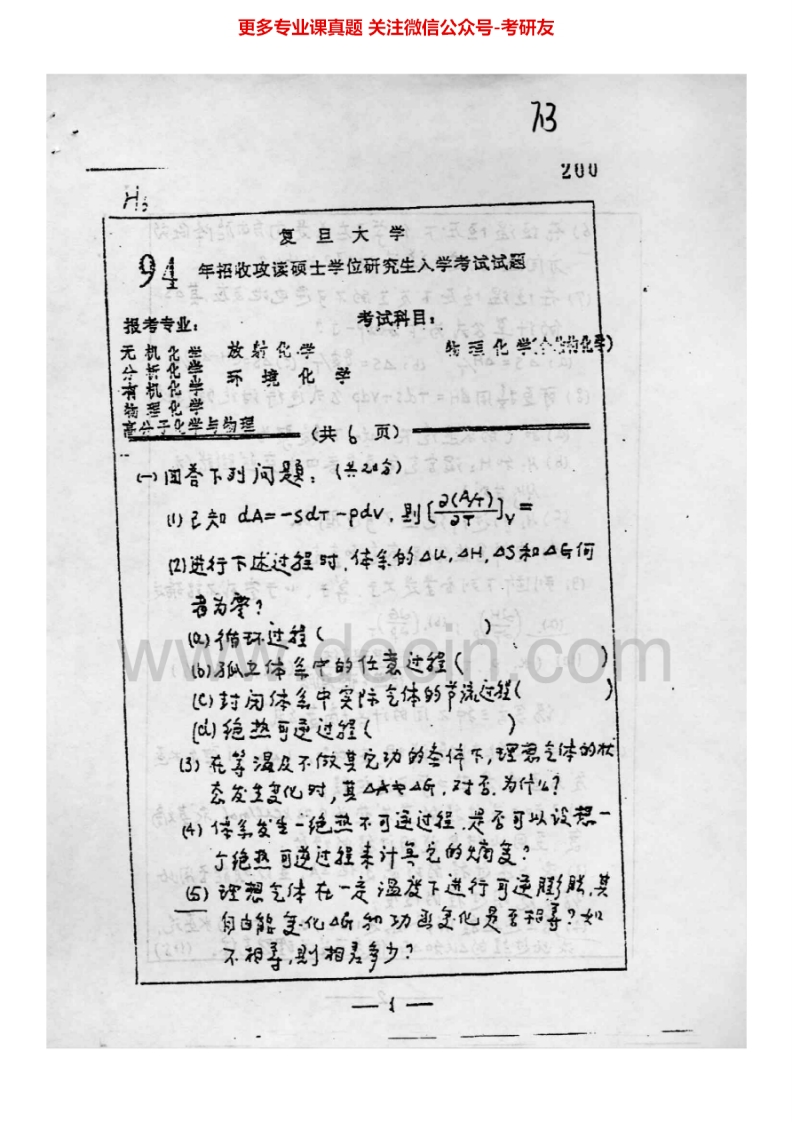 更多专业课真题 关注微信公众号-考研友
73
200
H5
复旦大学
94年招收攻读硕士学位研究生入学考试试题
报考专业：
考试科目：
无机化学 放射化学
物理化学(含结构化学)
分析化学 环境化学
有机化学
物理化学
高分子化学与物理
(共6页)
(一)回答下列问题：(共20分)
(1)已知 dA=-SdT-pdV，则[∂(A/T)/∂T]V=
(2)进行下述过程时，体系的ΔU，ΔH，ΔS和ΔG何
者为零？
(a)循环过程( )
(b)孤立体系中的任意过程( )
(c)封闭体系中实际气体的节流过程( )
(d)绝热可逆过程( )
(3)在等温及不做其它功的条件下，理想气体的状
态发生变化时，其ΔA=ΔG，对否，为什么？
(4)体系发生一绝热不可逆过程，是否可以设想一
个绝热可逆过程来计算它的熵变？
(5)理想气体在一定温度下进行可逆膨胀，其
自由能变化ΔG和功函变化是否相等？如
不相等，则相差多少？
www.docin.com
—1—